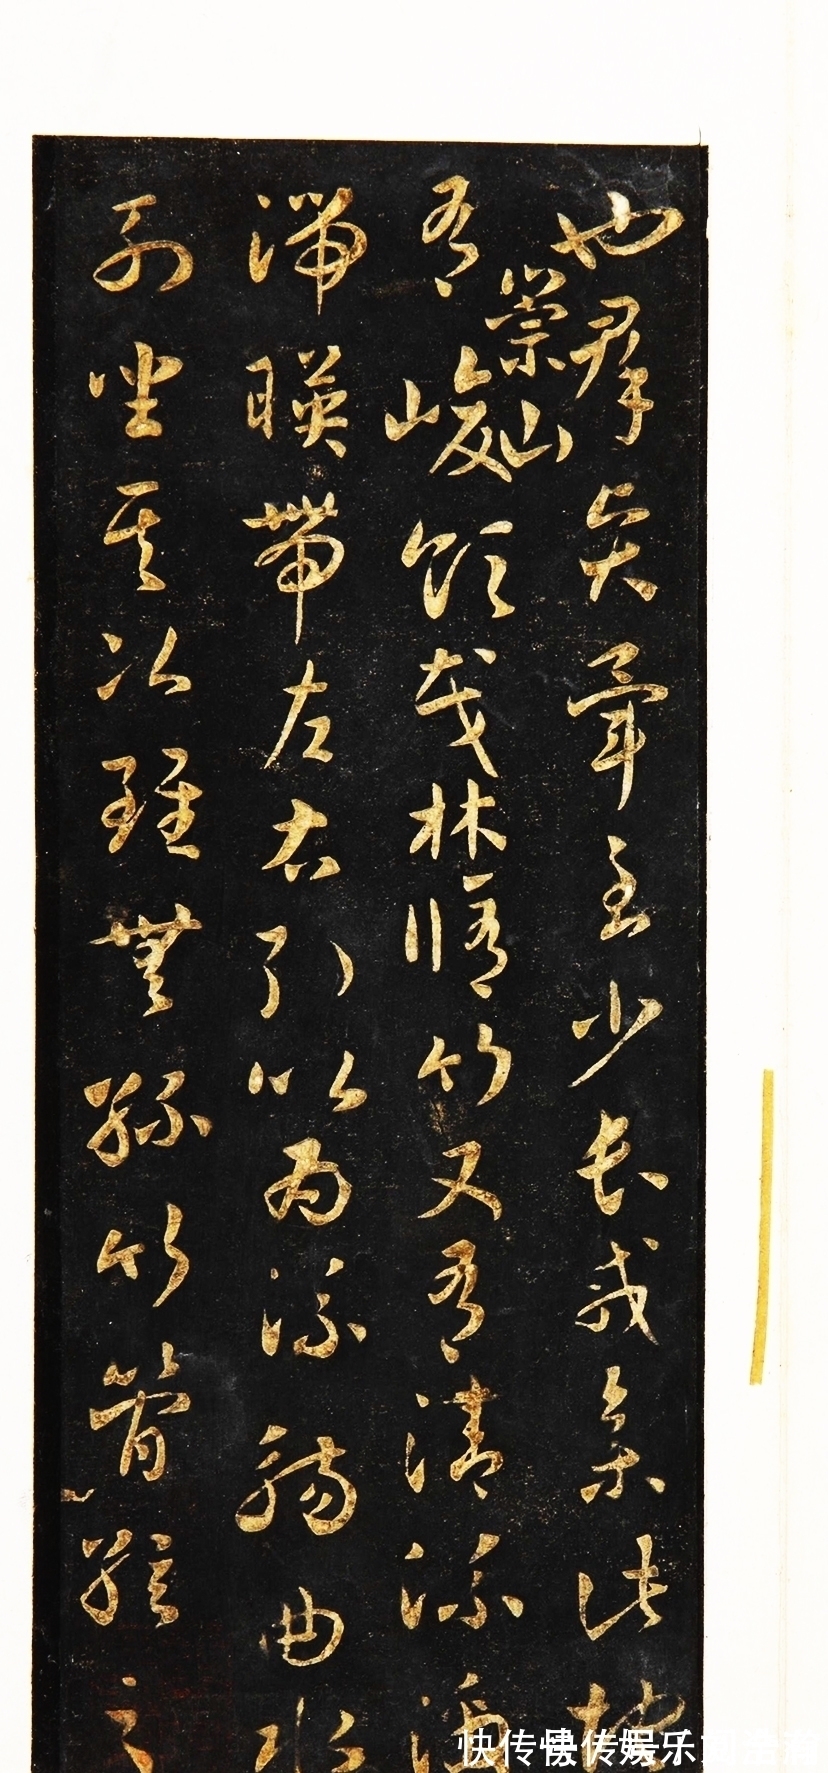 也群贤毕至少长咸集此地
有崇山峻领茂林脩竹又有清流激
湍暎带左右引以为流觞曲水
列坐其次虽无丝竹管弦之
快传号